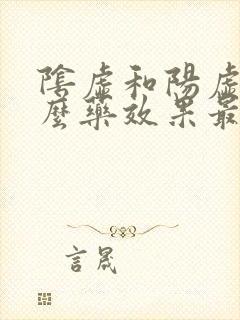 陰虛和陽虛
麼藥效果最
言晟